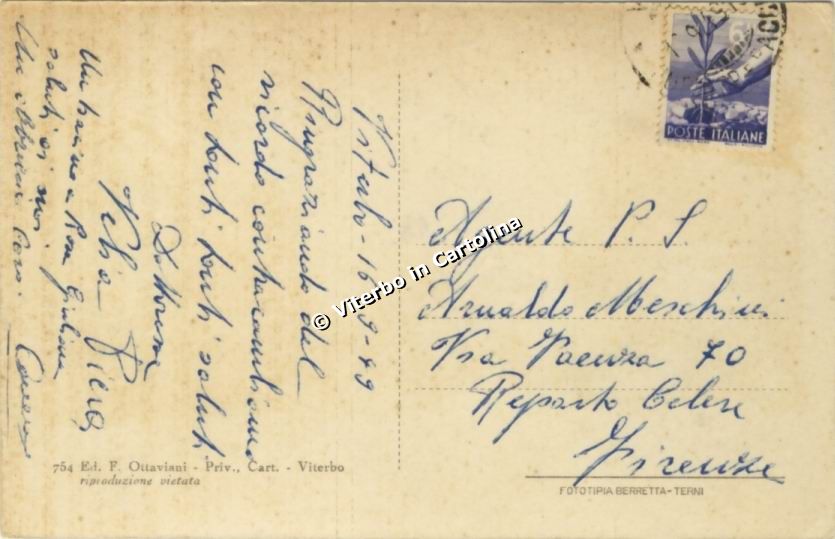 Viterbo - 16-9-49
Ringraziando del
ricordo contraccambiamo
con tanti tanti saluti
Dottoressa
Velia Piero
Un bacino a Rosa Giuliana
saluti ai
Un abbraccio Caro.
Agente P. S.
Arnaldo Meschini
Via Faenza 70
Reparto Celere
Firenze
POSTE ITALIANE
© Viterbo in Cartolina
754 Ed. F. Ottaviani - Priv., Cart. - Viterbo
riproduzione vietata
FOTOTIPIA BERRETTA-TERNI